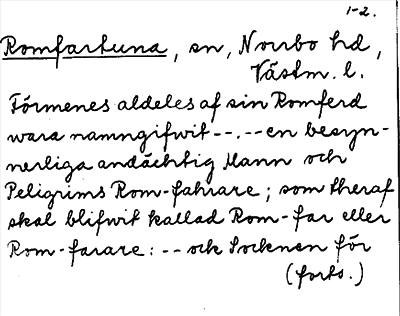 1-2.
Romfartuna, sn, Norrbo hd,
Västm. l.
Förmenes aldeles af sin Romferd
wara namngifwit --.-- en besyn-
nerliga andächtig Mann och
Peligrims Rom-fahrare; som theraf
skal blifwit kallad Rom-far eller
Rom-farare: -- och Socknen för
(forts.)